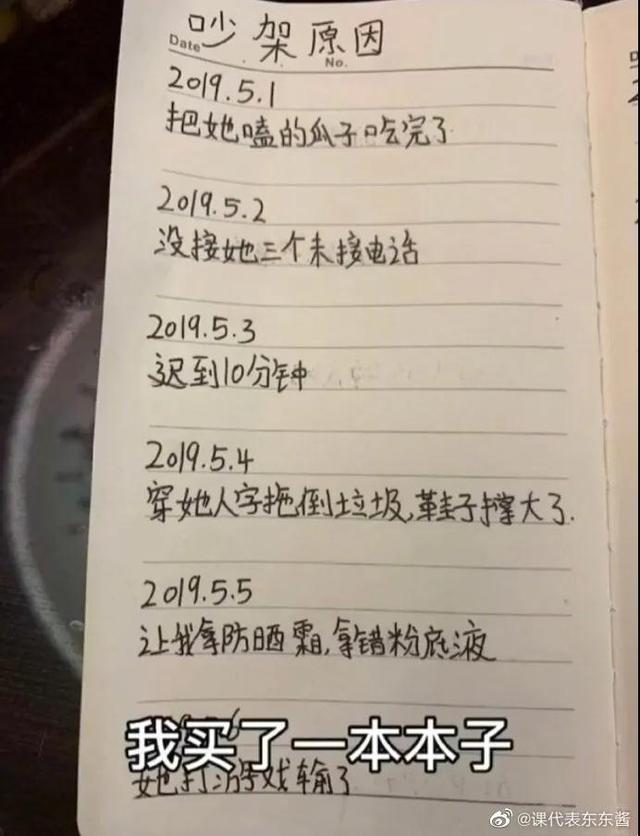 吵架原因
Date
No.
2019.5.1
把她嗑的瓜子吃完了
2019.5.2
没接她三个未接电话
2019.5.3
迟到10分钟
2019.5.4
穿她人字拖倒垃圾,鞋子撑大了.
2019.5.5
让我拿防晒霜,拿错粉底液
我买了一本本子
她打游戏输了
@课代表东东酱